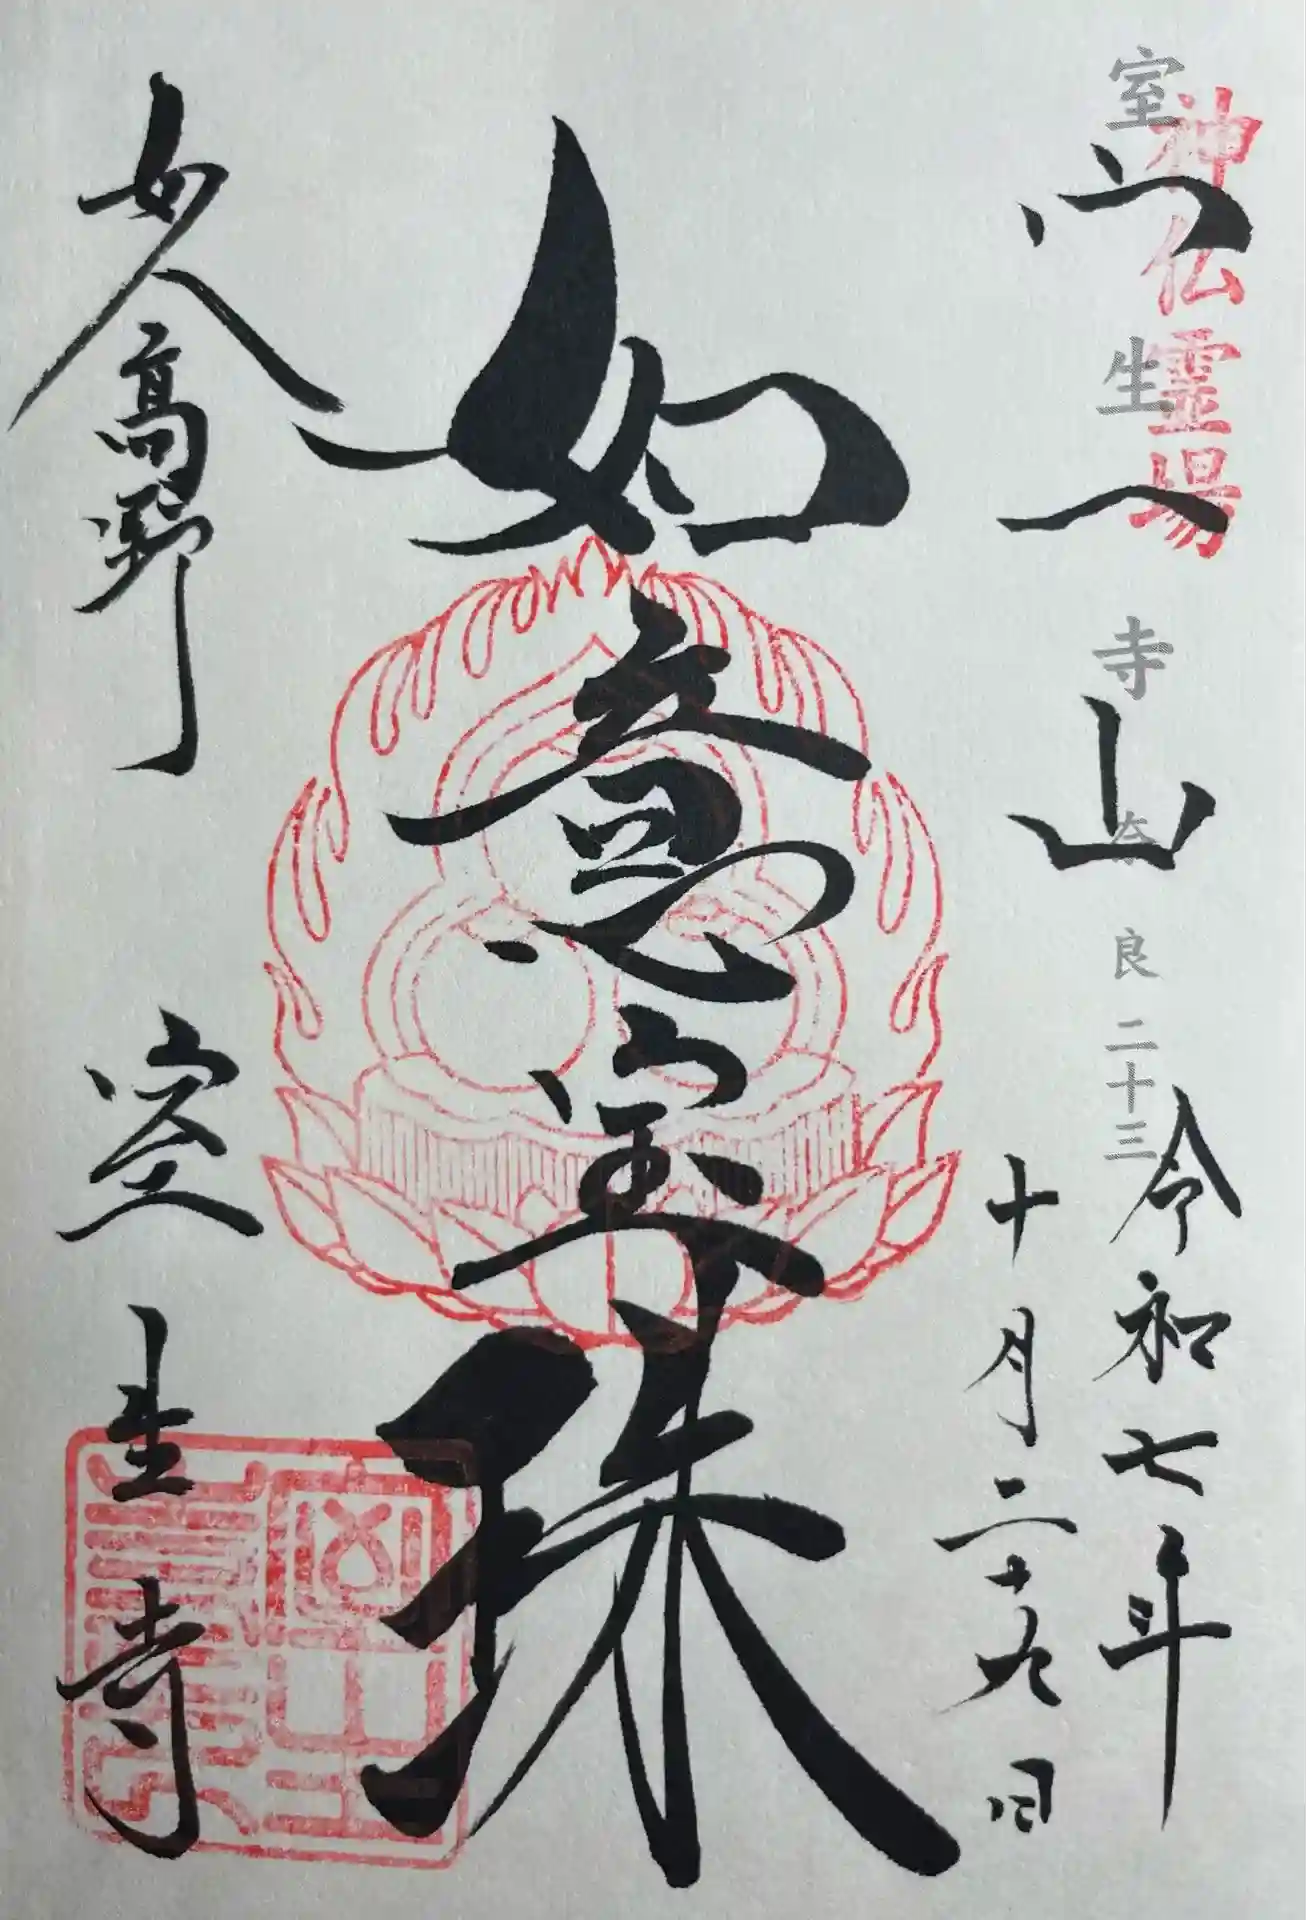 神仏霊場
室生寺 奈良 二十三
宀一山
令和七年
十月二十九日
如意宝珠
女人高野
室生寺